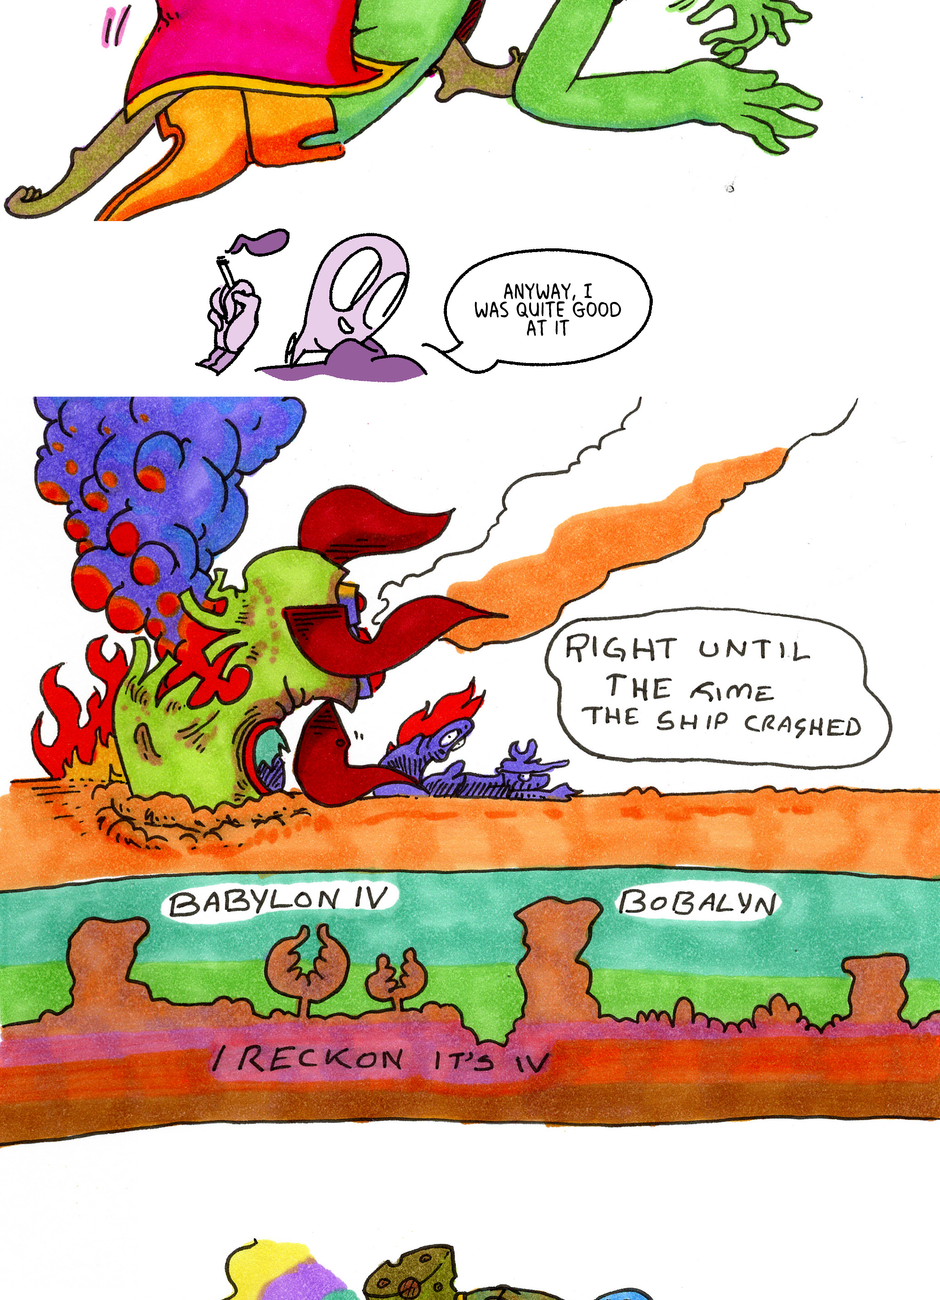 ANYWAY, I
WAS QUITE GOOD
AT IT
RIGHT UNTIL
THE TIME
THE SHIP CRASHED
BABYLON IV
BOBALYN
I RECKON IT'S IV